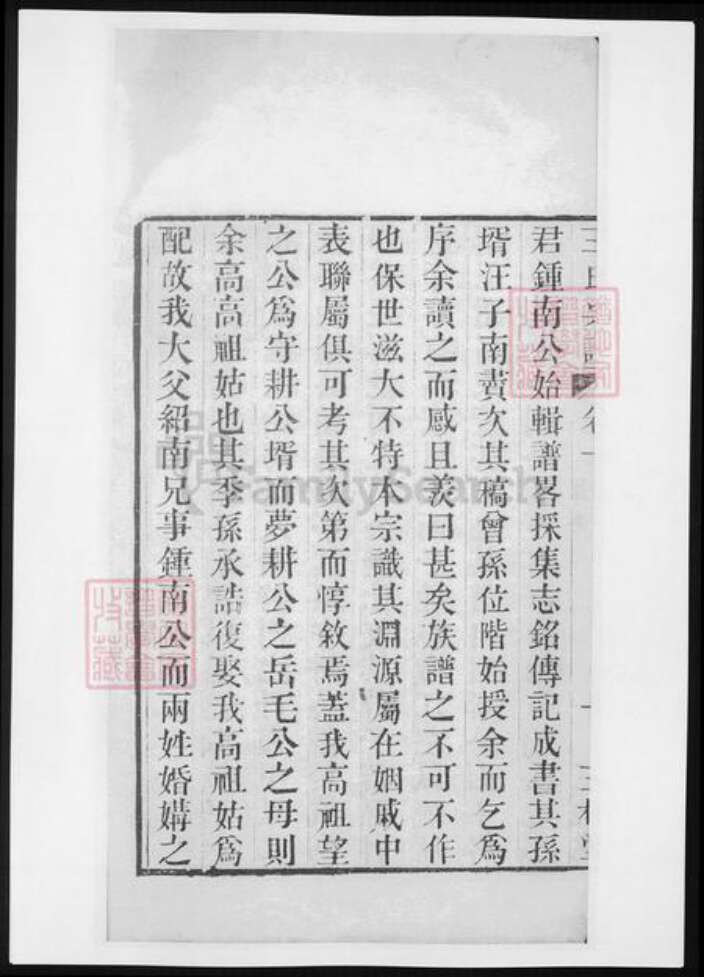 君鍾南公始輯譜畧採集志銘傳記成書其孫
壻汪子南賚次其稿曾孫位階始授余而乞爲
序余讀之而感且羨曰甚矣族譜之不可不作
也保世滋大不特本宗識其淵源屬在姻戚中
表聯屬俱可考其次第而惇敘焉蓋我高祖望
之公爲守耕公壻而夢耕公之岳毛公之母則
余高高祖姑也其季孫承誥復娶我高祖姑爲
配故我大父紹南兄事鍾南公而兩姓婚媾之
FamilySearch